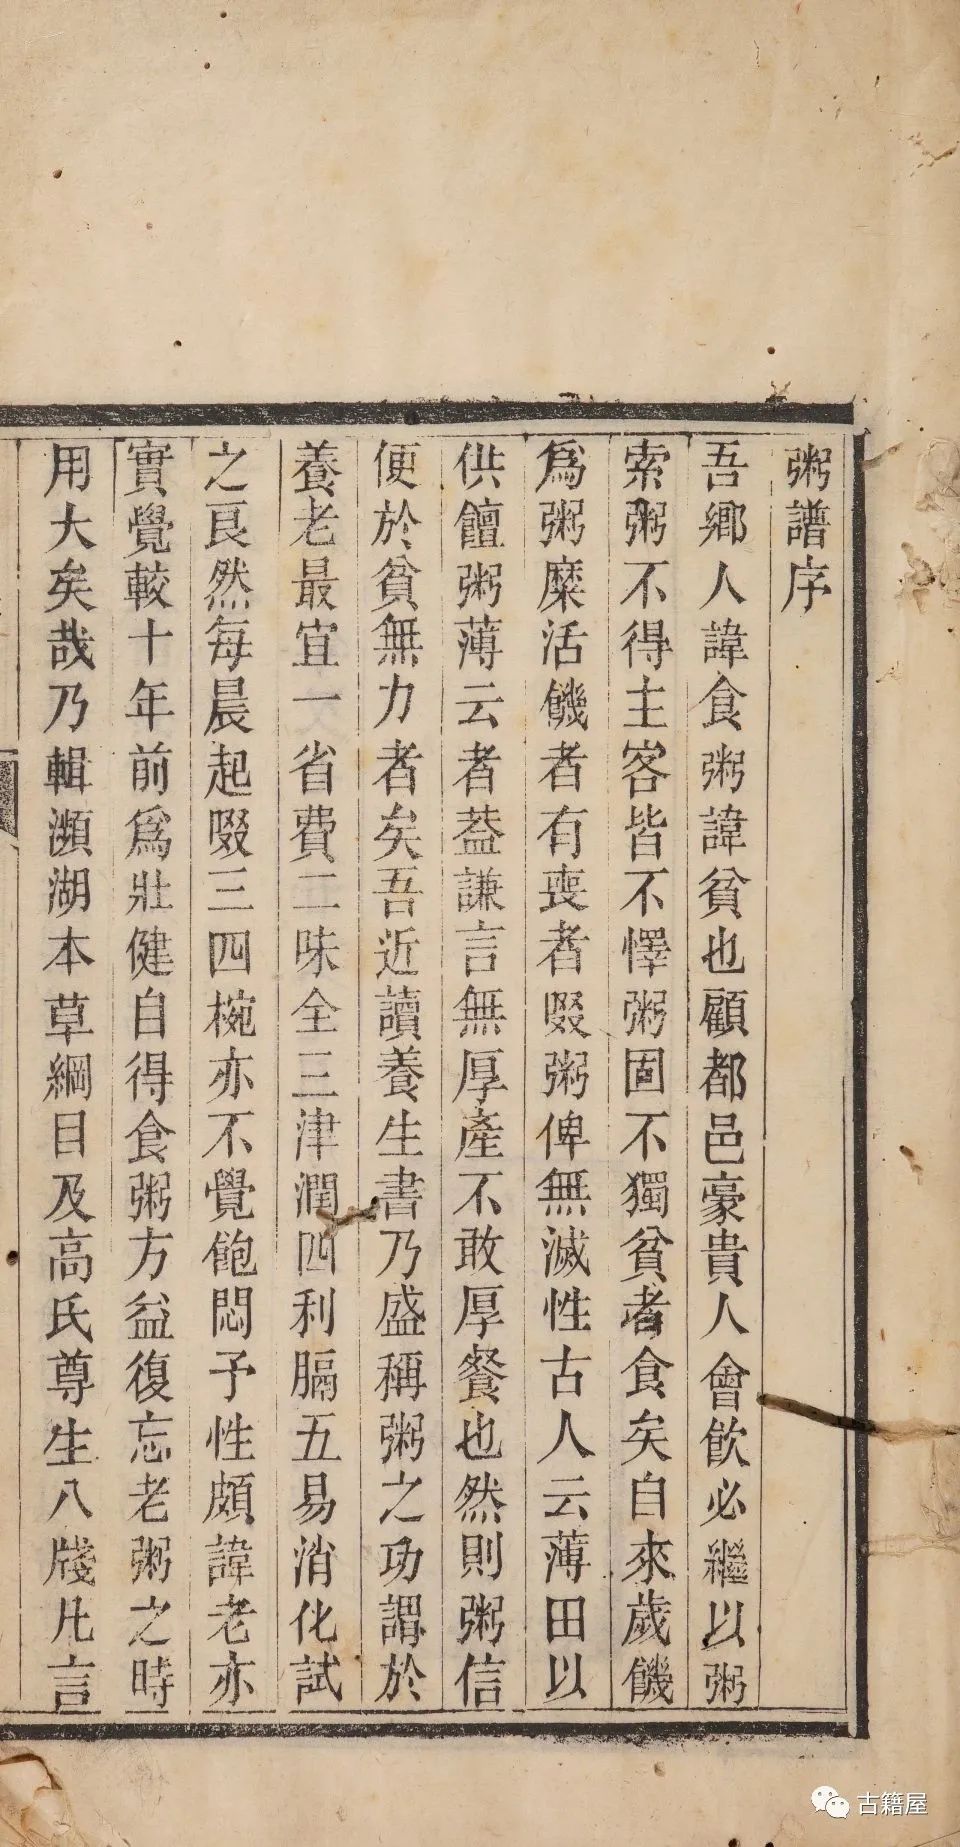 粥譜序
吾鄉人諱食粥諱貧也顧都邑豪貴人會飲必繼以粥
索粥不得主客皆不懌粥固不獨貧者食矣自來歲饑
爲粥糜活饑者有喪者啜粥俾無滅性古人云薄田以
供饘粥薄云者葢謙言無厚產不敢厚餐也然則粥信
便於貧無力者矣吾近讀養生書乃盛稱粥之功謂於
養老最宜一省費二味全三津潤四利膈五易消化試
之良然每晨起啜三四椀亦不覺飽悶予性頗諱老亦
實覺較十年前爲壯健自得食粥方益復忘老粥之時
用大矣哉乃輯瀕湖本草綱目及高氏尊生八牋凡言
古籍屋